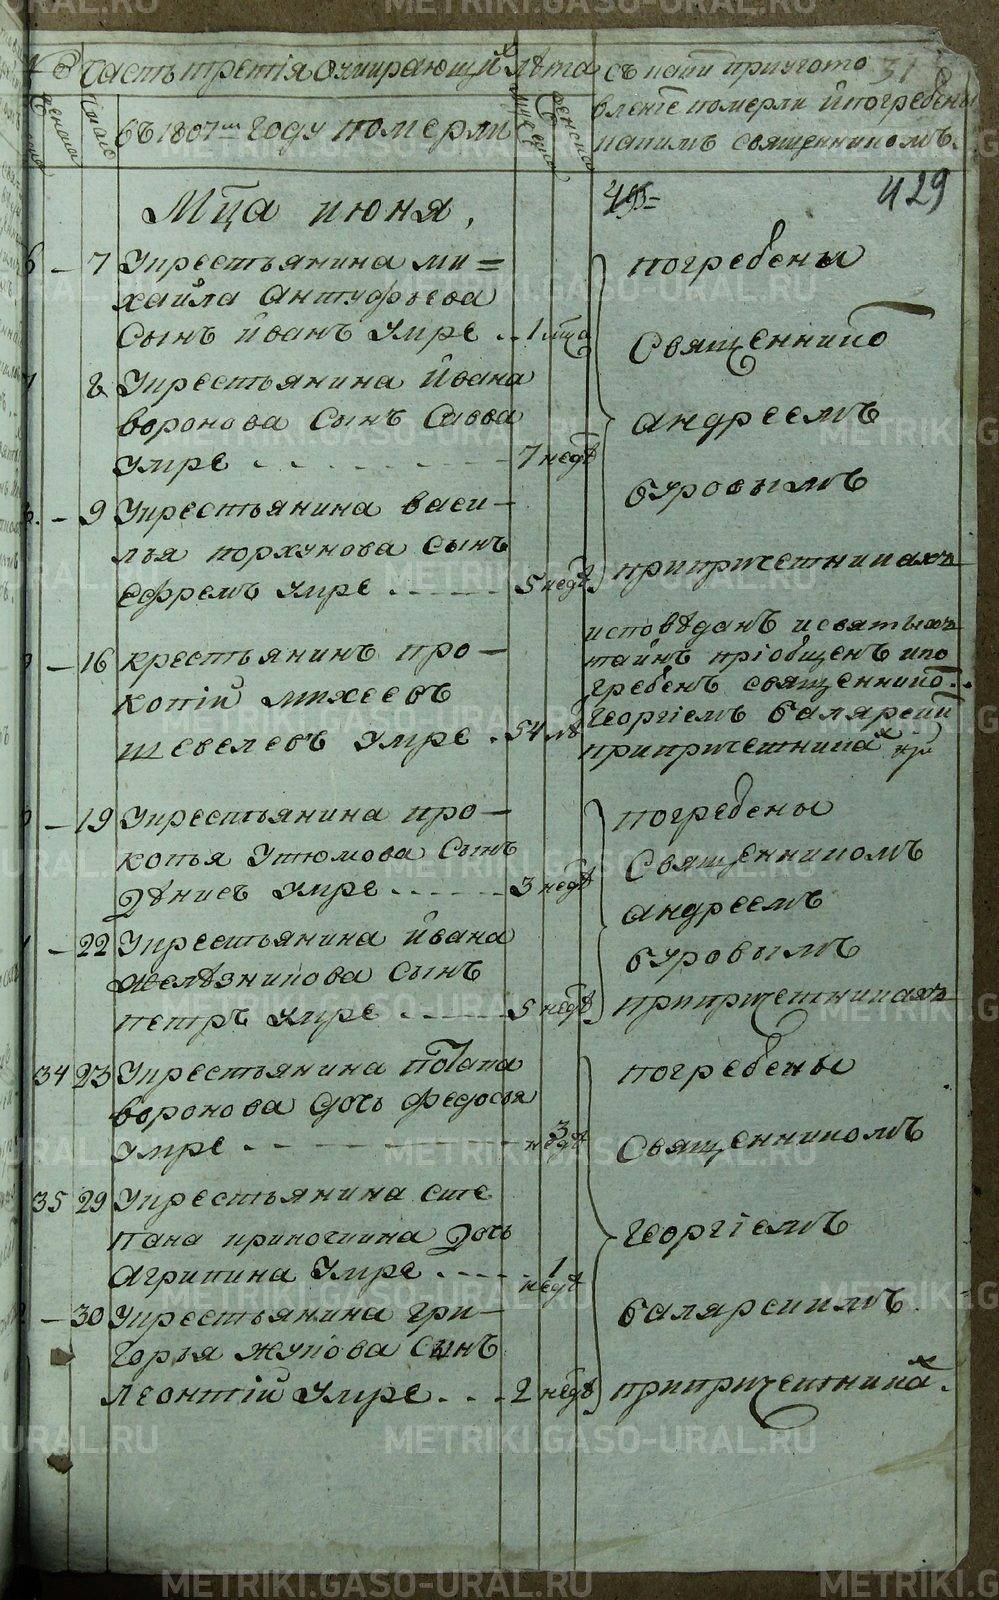 Часть третія Оумирающихъ лѣта
въ 1807м году померли
съ каки приугото
вленіе померли и погребены
какимъ священникомъ.
женска
число
мужеска
женска
318
429
Мца июня,
7 Укрестьянина ми=
хаила Антуфьева
Сынъ Иванъ Умре .. 1 мца
8 Укрестьянина Ивана
воронова Сынъ Савва
Умре - - - - 7 недѣ
9 Укрестьянина васи-
лья порхунова Сынъ
ефремъ Умре - - - - 5 недѣ
погребены
Священнико
андреемъ
буровымъ
припричетникахъ
16 крестьянинъ про-
копій михеевъ
щевелевъ Умре . 54 лѣ
исповѣданъ и святыхъ
таинъ пріобщенъ и по
гребенъ священнико..
Георгіемъ балярски
припричетника
19 Укрестьянина про-
копья Утюмова Сынъ
Дѣнисъ Умре - - - - 3 недѣ
22 Укрестьянина Ивана
желѣзникова Сынъ
петръ Умре - - - - 5 недѣ
погребены
Священникомъ
андреемъ
буровымъ
припричетникахъ
34 23 Укрестьянина Потапа
воронова дочь федосья
Умре - - - - 3 недѣ
35 29 Укрестьянина сте
пана кривочкина Дочь
Агрипина Умре - - - - 1 недѣ
30 Укрестьянина гри-
горья жукова Сынъ
леонтій Умре - - - 2 недѣ
погребены
Священникомъ
Георгіемъ
балярскимъ
припричетника.
METRIKI.GASO-URAL.RU